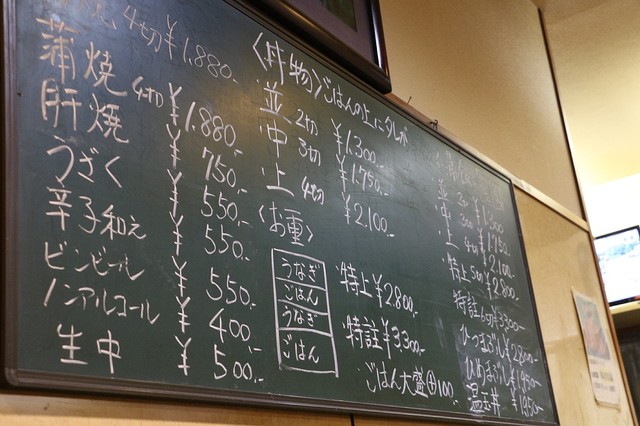 4切 ¥1,880.
蒲焼 4切 ¥1,880.-
肝焼 ¥750.-
うざく ¥550.-
辛子和え ¥550.-
ビンビール ¥550.-
ノンアルコール ¥400.-
生中 ¥500.-
〈丼物〉ごはんの上にタレが
・並 2切 ¥1,300.-
・中 3切 ¥1,750.-
・上 4切 ¥2,100.-
〈お重〉
うなぎ
ごはん
うなぎ
ごはん
特上 ¥2800.-
特註 ¥3300.-
ごはん大盛⊕100.-
並 2切 ¥1,300
中 3切 ¥1,750
上 4切 ¥2,100
特上 5切 ¥2,800
特註 6切 ¥3300
ひつまぶし ¥2800
ひめまぶし ¥1950
温玉丼 ¥1950